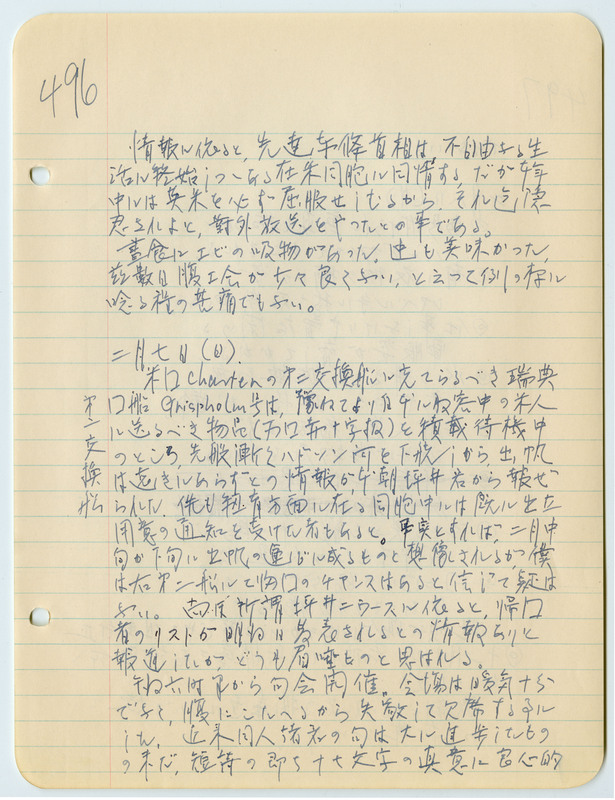 496
情報に依ると、先達東條首相は、不自由なる生
活に終始しつゝある在米同胞に同情する、だが今年
中には英米を必ず屈服せしむるから、それ迄隠
忍されよと、對外放送をやつたとの事である。
昼食にエビの吸物があつた、迚も美味かつた、
茲数日腹工合が女々良くない、と云つて例の様に
唸る程の甚痛でもない。
二月七日(日).
米国Charterの第二交換船に充てらるべき瑞典
国船Gripsholm号は、豫ねてより日本収容中の米人
に送るべき物品(万国赤十字扱)を積載待機中
のところ、先般漸くハドソン河を下航しから、出帆
は遠きにあらずとの情報が、今朝坪井君から報ぜ
られた、併も紐育方面に在る同胞中には既に出立
用意の通知を受けた者もあると。事実とすれば、二月中
旬か下旬に出帆の運びに成るものと想像されるが、僕
は右第二船にて帰国のチヤンスはあると信じて疑は
ない。尚ほ所謂坪井ニュースに依ると、帰国
者のリストが明日発表されるとの情報ありと
報道したが、どうも眉唾ものと思はれる。
午後六時半から句会開催。会場は暖気十分
でなく、腹にこたへるから失敬して欠席する事に
した、近来同人諸君の句は大に進歩したもの
の未だ、短詩の即ち十七文字の真意に良心的
第二交換船